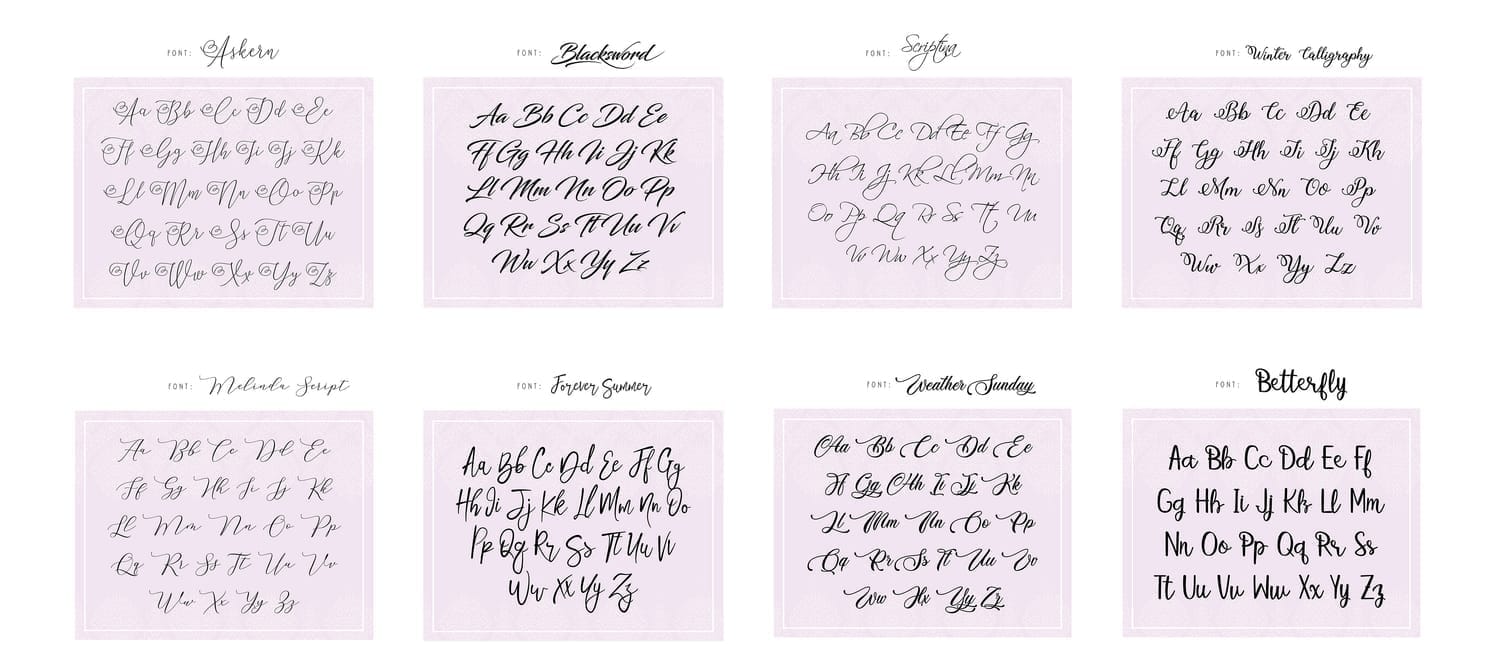 FONT: Askern
Aa Bb Cc Dd Ee
Ff Gg Hh Ii Jj Kk
Ll Mm Nn Oo Pp
Qq Rr Ss Tt Uu
Vv Ww Xx Yy Zz
FONT: Blacksword
Aa Bb Cc Dd Ee
Ff Gg Hh Ii Jj Kk
Ll Mm Nn Oo Pp
Qq Rr Ss Tt Uu Vv
Ww Xx Yy Zz
FONT: Scriptina
Aa Bb Cc Dd Ee Ff Gg
Hh Ii Jj Kk Ll Mm Nn
Oo Pp Qq Rr Ss Tt Uu
Vv Ww Xx Yy Zz
FONT: Winter Calligraphy
Aa Bb Cc Dd Ee
Ff Gg Hh Ii Jj Kk
Ll Mm Nn Oo Pp
Qq Rr Ss Tt Uu Vv
Ww Xx Yy Zz
FONT: Melinda Script
Aa Bb Cc Dd Ee
Ff Gg Hh Ii Jj Kk
Ll Mm Nn Oo Pp
Qq Rr Ss Tt Uu Vv
Ww Xx Yy Zz
FONT: Forever Summer
Aa Bb Cc Dd Ee Ff Gg
Hh Ii Jj Kk Ll Mm Nn Oo
Pp Qq Rr Ss Tt Uu Vv
Ww Xx Yy Zz
FONT: Weather Sunday
Aa Bb Cc Dd Ee
Ff Gg Hh Ii Jj Kk
Ll Mm Nn Oo Pp
Qq Rr Ss Tt Uu Vv
Ww Xx Yy Zz
FONT: Betterfly
Aa Bb Cc Dd Ee Ff
Gg Hh Ii Jj Kk Ll Mm
Nn Oo Pp Qq Rr Ss
Tt Uu Vv Ww Xx Yy Zz